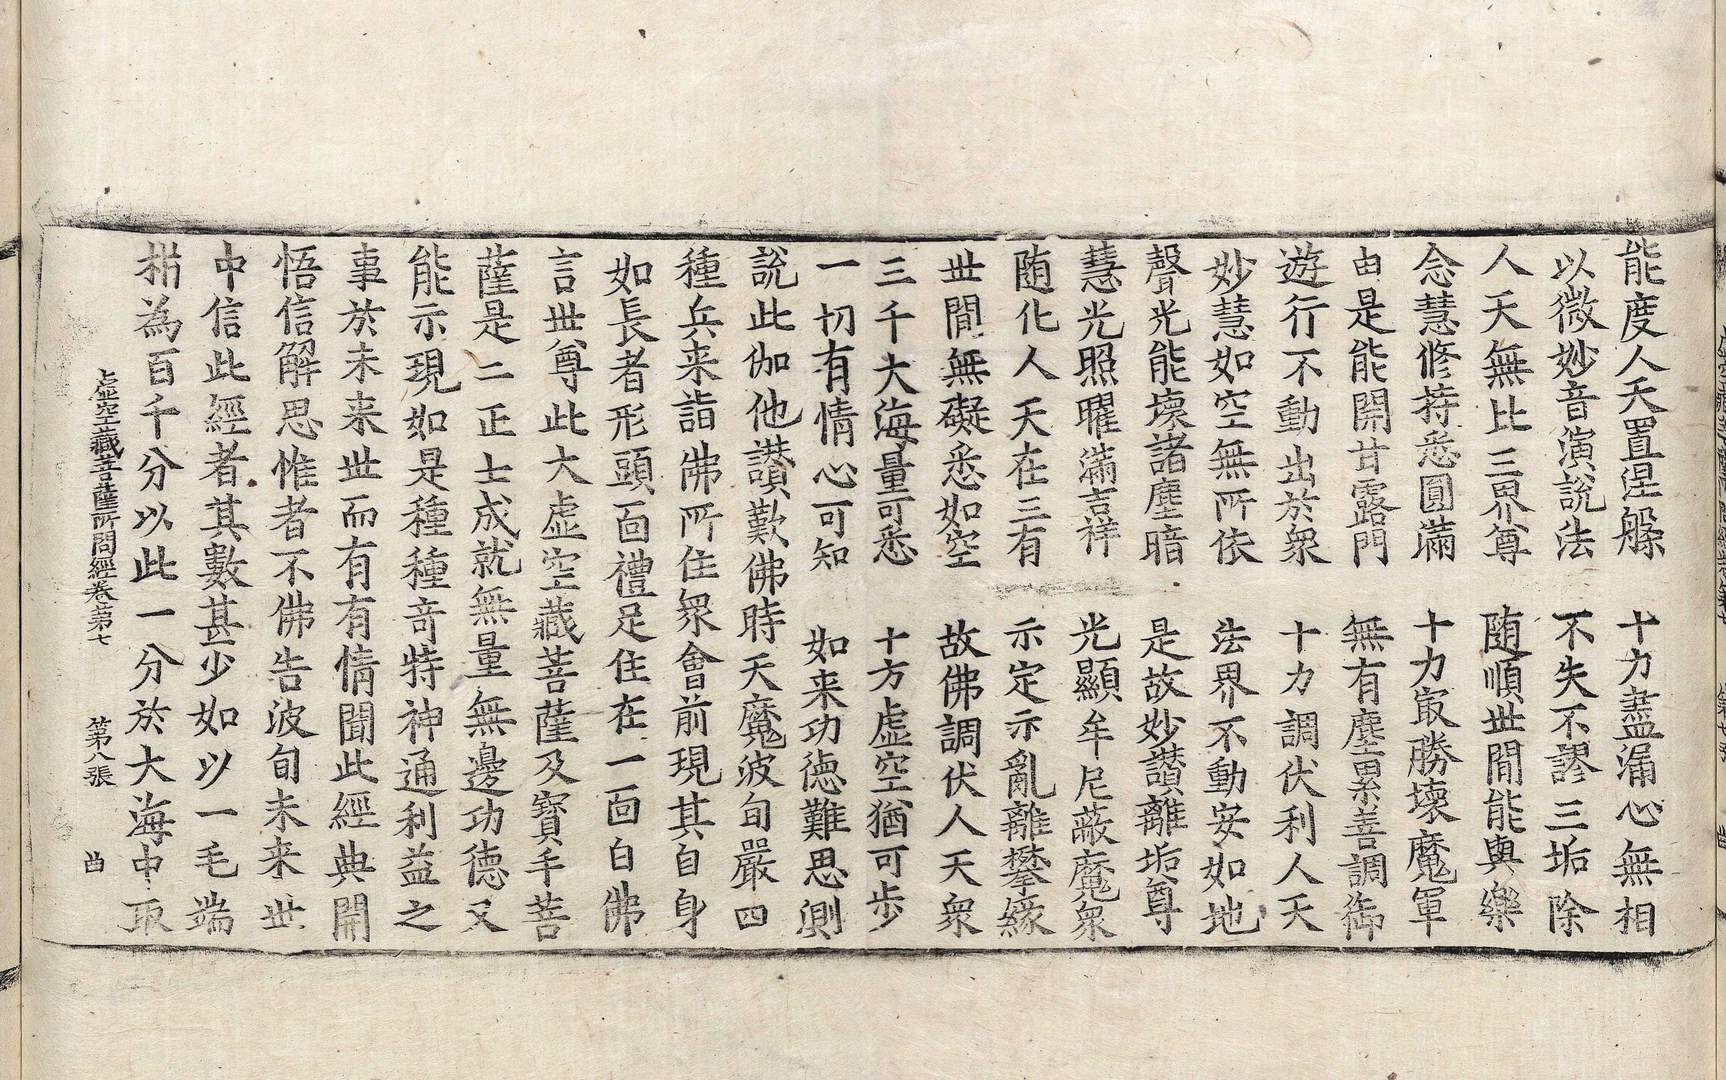 能度人天置涅槃　十力盡漏心無相
以微妙音演說法　不失不謬三垢除
人天無比三界尊　随順世間能與樂
念慧修持悉圓滿　十力㝡勝壞魔軍
由是能開甘露門　無有塵累善調御
遊行不動出於衆　十力調伏利人天
妙慧如空無所依　法界不動安如地
聲光能壞諸塵暗　是故妙讚離垢尊
慧光照曜滿吉祥　光顯牟尼蔽魔衆
随化人天在三有　示定示亂離攀緣
世間無礙悉如空　故佛調伏人天衆
三千大海量可悉　十方虛空猶可步
一切有情心可知　如来功德難思測
說此伽他讚歎佛時天魔波旬嚴四
種兵来詣佛所住衆會前現其自身
如長者形頭面禮足住在一面白佛
言世尊此大虛空藏菩薩及寳手菩
薩是二正士成就無量無邊功德又
能示現如是種種奇特神通利益之
事於未来世而有有情聞此經典開
悟信解思惟者不佛告波旬未来世
中信此經者其數甚少如以一毛端
㭊為百千分以此一分於大海中取
虛空藏菩薩所問經卷第七　第八張　曲